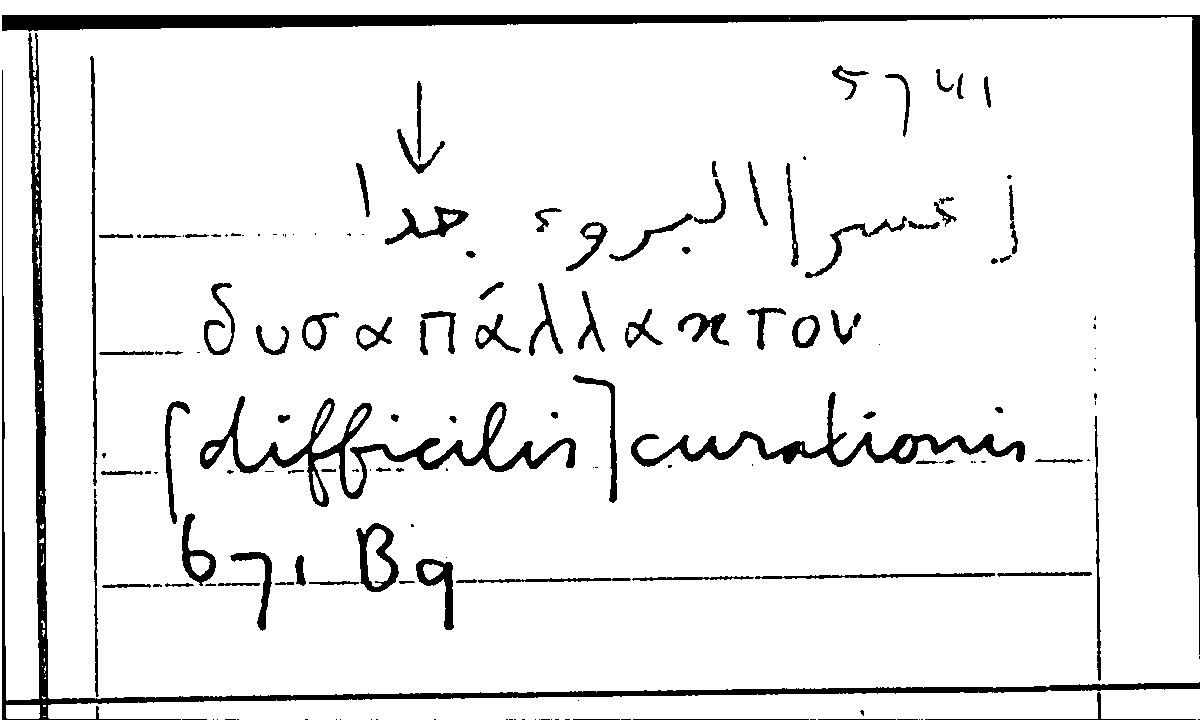 5741
↓
[عسر] البروء جدا
δυσαπάλλακτον
[difficilis] curationis
671 B9